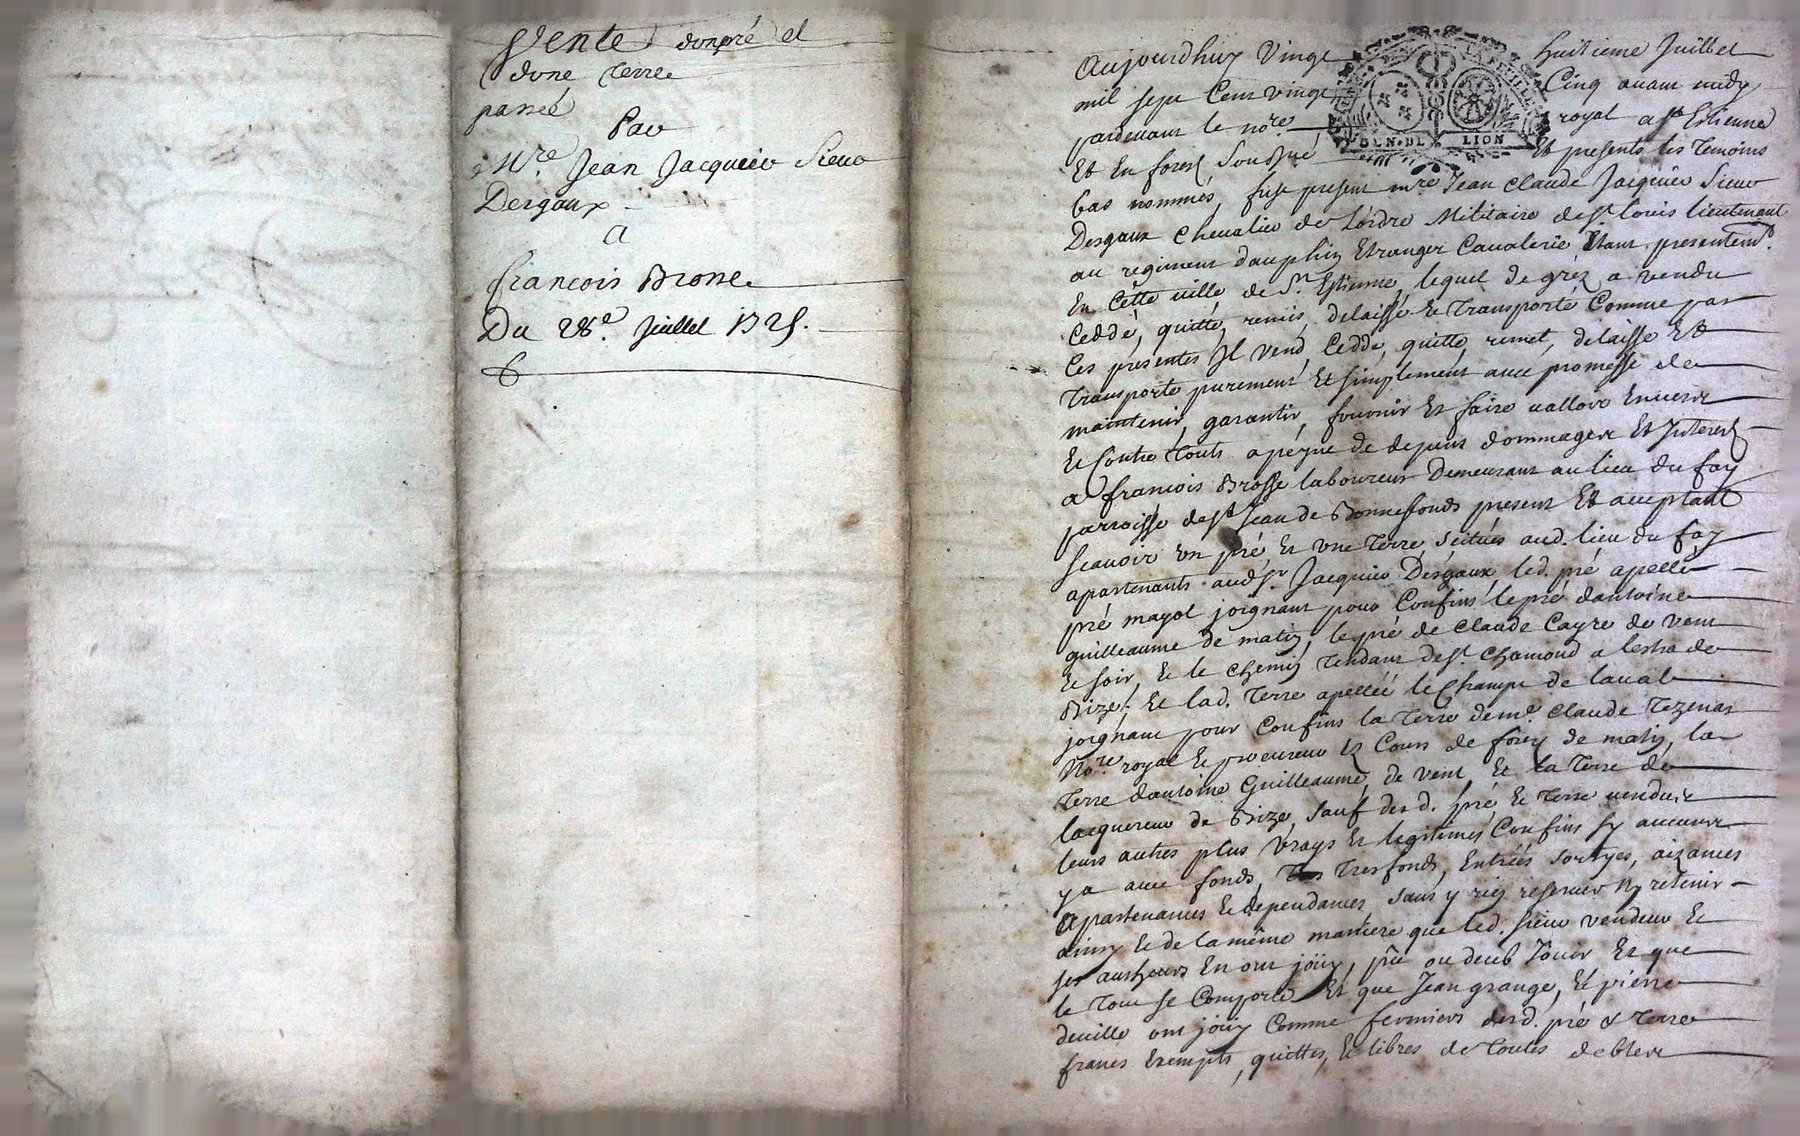 Vente dunpré et
dune Terre
passée
Par
Mre. Jean Jacquier Sieur
Desgaux
a
francois Brosse
Du 28e. Juillet 1725.
Aujourdhuy Vingt huitieme Juillet
mil sept Cent vingt Cinq auant midy
pardeuant le nore. royal a st Estienne
Et En forest Soussigné Et presents les Temoins
bas nommés, fust present mre Jean Claude Jacquier Sieur
Desgaux cheualier de Lordre Militaire de st. louis lieutenant
au regiment dauphin Etranger Caualerie Etant presentemt.
En Cette ville de St. Estienne, lequel de gréz a vendu
Ceddé, quitté, remis, delaissé et Transporté Comme par
Ces presentes Il vend, Cedde, quitte, remet, delaisse Et
Transporte purement Et simplement auec promesse de
maintenir, garantir, fournir Et faire valloir Enuers
Et Contre Touts a peyne de depens dommages Et Interest
a francois Brosse laboureur Demeurant au lieu du fay
parroisse de st Jean de Bonnefonds present Et acceptant
scauoir un pré Et vne Terre scitués aud. lieu du fay
apartenants aud. sr Jacquier Desgaux, led. pré apellé
pré mayol joignant pour Confins le pré dantoine
guilleaume de matin, le pré de Claude Cayre de vent
Et soir, Et le chemin Tendant de st. chamond a lestra de
Bize; Et lad. Terre apellée le Champt de laual
joignant pour Confins la Terre de me. Claude Tezenas
Nore. royal Et procureur Ez Cours de forez de matin, la
Terre dantoine Guilleaume, de vent, Et la Terre de
lacquereur de Bize, sauf desd. pré Et Terre vendus
leurs autres plus vrays Et legitimes Confins sy aucuns
y a auec fonds, Tresfonds, Entrées sortyes, aizances
apartenances Et dependances sans y rien reseruer Ny retenir
ainsy Et de la même maniere que led. sieur vendeur Et
ses autheurs En ont joüy, pû ou deub Joüir Et que
le Tout se Comporte Et que Jean grange, Et pierre
deuille ont joüy Comme fermiers desd. pré & Terre
francs Exempts, quittes, Et libres de Toutes debtes